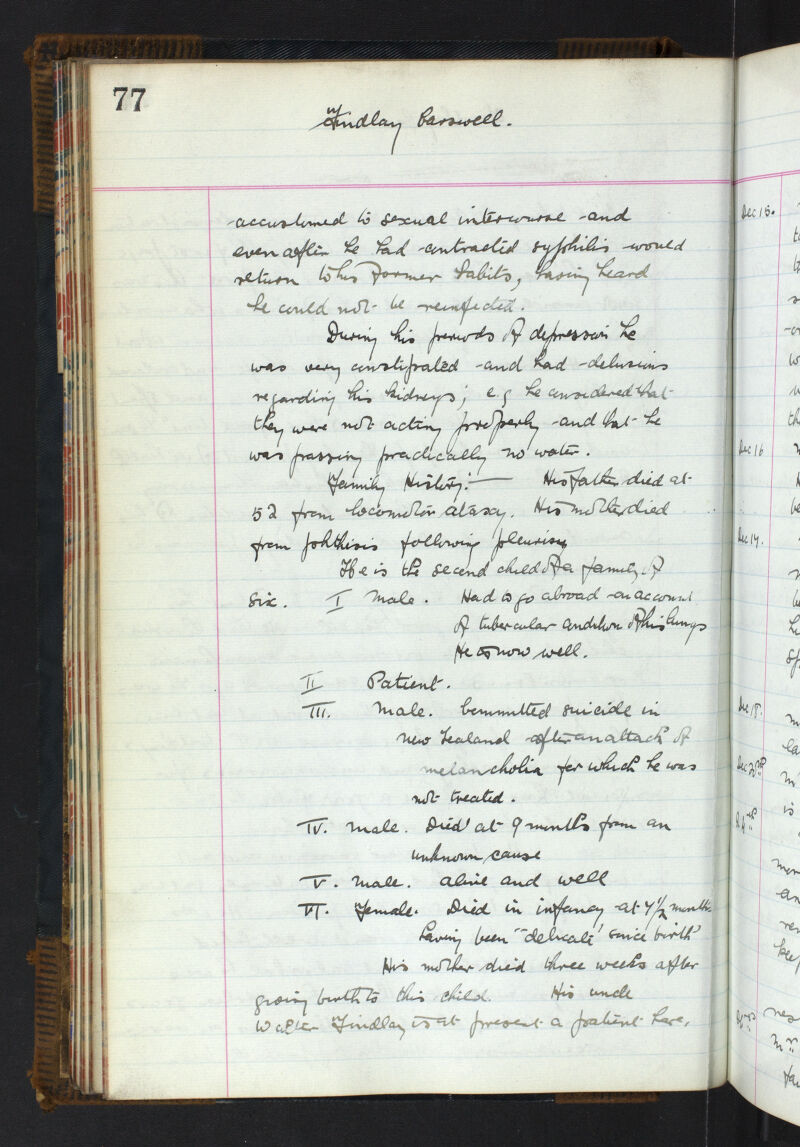 77
Findlay Carswell.
accustomed to sexual intercourse and
even after he had contracted syphilis would
return to his former habits, having heard
he could not be reinfected.
During his periods of depression he
was very constipated and had delusions
regarding his kidneys; e.g he considered that
they were not acting properly and that he
was passing practically no water.
Family History:— His father died at
52 from locomotor ataxy. His mother died
from phthisis following pleurisy
He is the second child of a family of
six. I Male. Had to go abroad on account
of tubercular condition of his lungs
He is now well.
II Patient.
III. Male. Committed suicide in
New Zealand after an attack of
melancholia for which he was
not treated.
IV. Male. Died at 9 months from an
unknown cause
V. Male. alive and well
VI. Female. Died in infancy at 4½ months
having been "delicate" since birth
His mother died three weeks after
giving birth to this child. His uncle
Walter Findlay is at present a patient here.
Dec 15.
Dec 16
Dec 17.
Dec 18.
Dec 20th